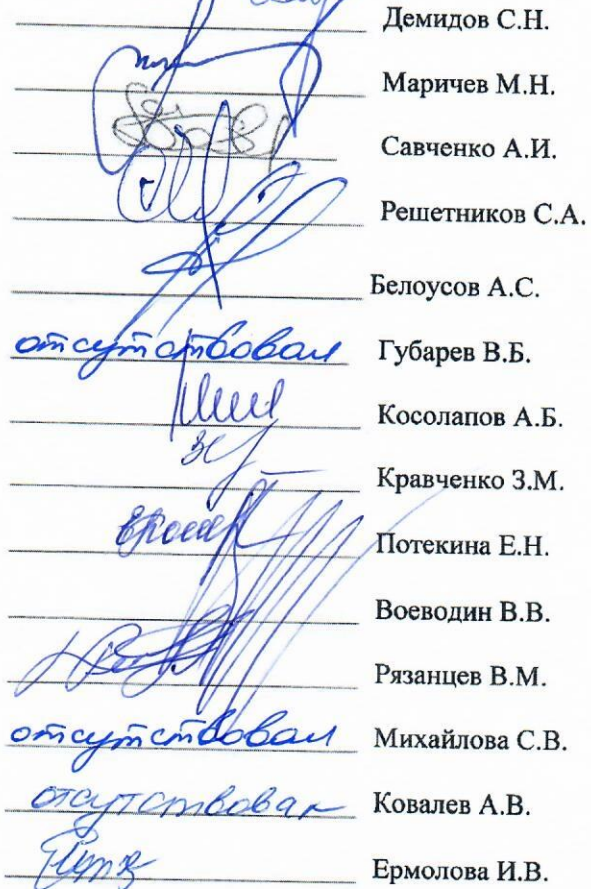 Демидов С.Н.
Маричев М.Н.
Савченко А.И.
Решетников С.А.
Белоусов А.С.
отсутствовал Губарев В.Б.
Косолапов А.Б.
Кравченко З.М.
Потекина Е.Н.
Воеводин В.В.
Рязанцев В.М.
отсутствовал Михайлова С.В.
отсутствовал Ковалев А.В.
Ермолова И.В.